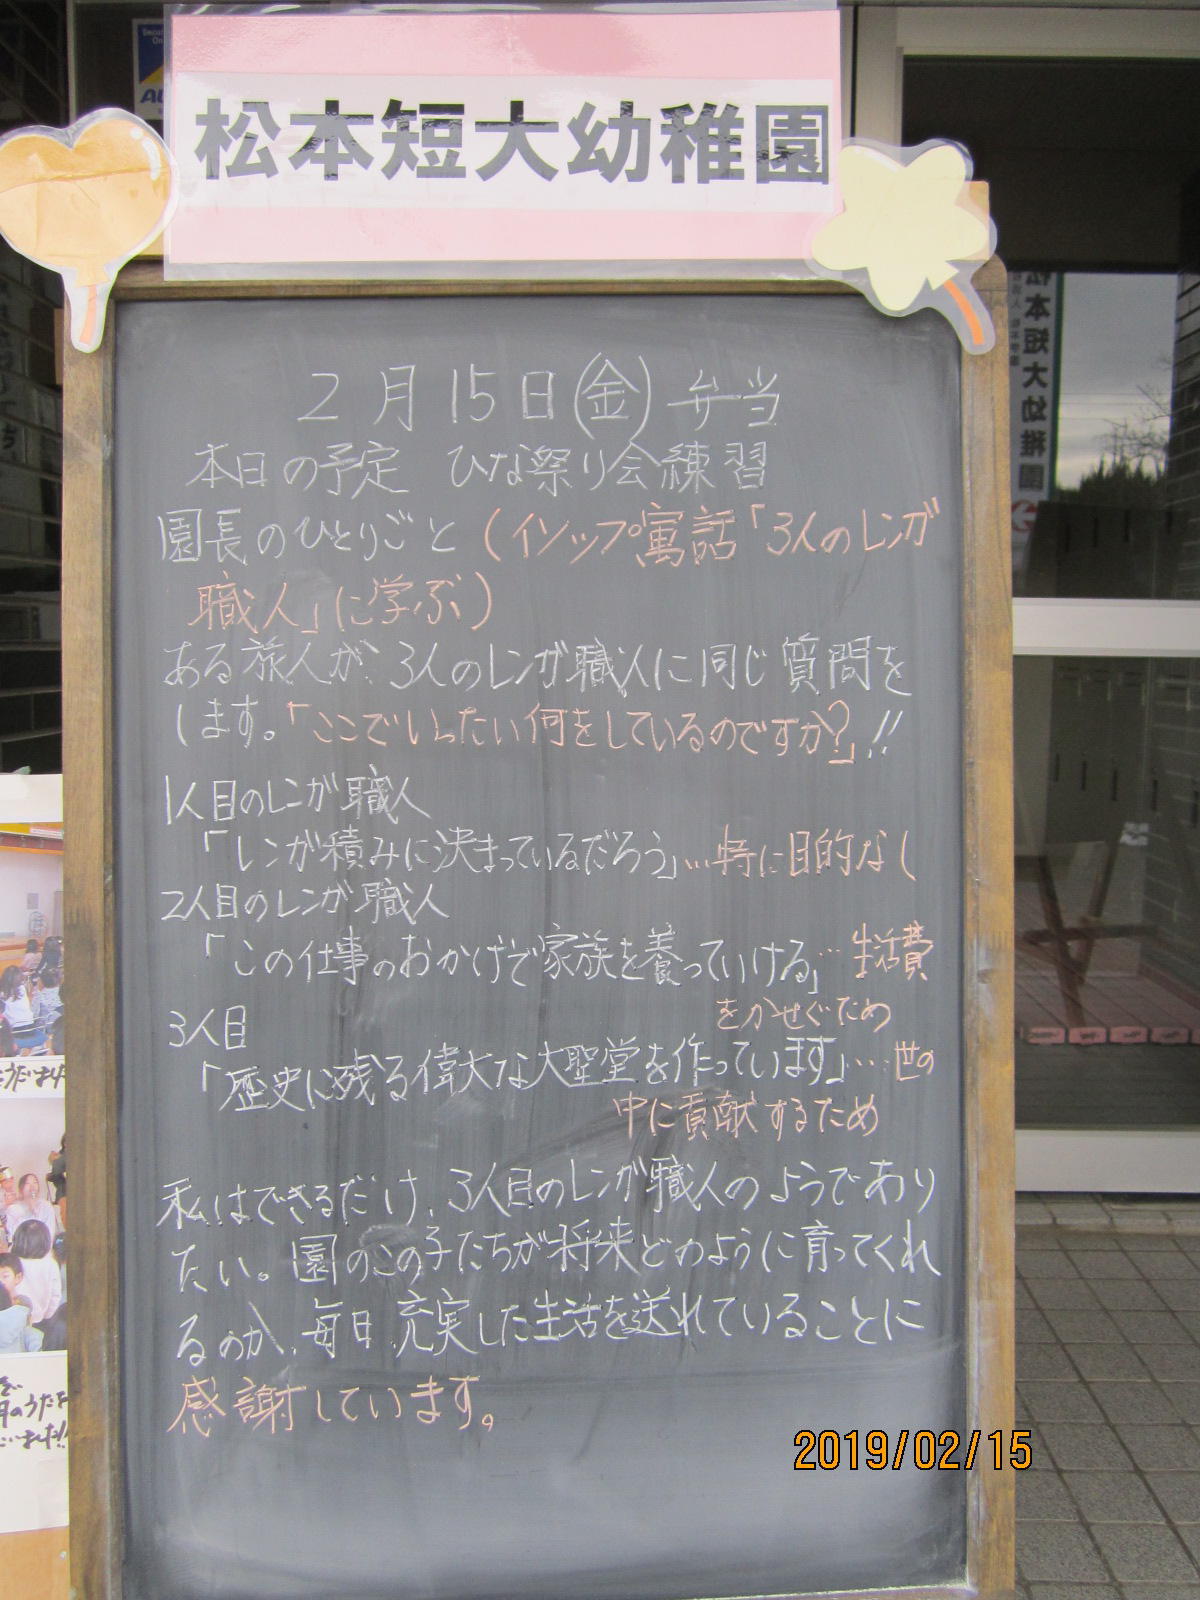 松本短大幼稚園
2月15日(金)弁当
本日の予定 ひな祭り会練習
園長のひとりごと(イソップ寓話「3人のレンガ
職人」に学ぶ)
ある旅人が、3人のレンガ職人に同じ質問を
します。「ここでいったい何をしているのですか?」!!
1人目のレンガ職人
「レンガ積みに決まっているだろう」…特に目的なし
2人目のレンガ職人
「この仕事のおかげで家族を養っていける」…生活費
をかせぐため
3人目
「歴史に残る偉大な大聖堂を作っています」…世の
中に貢献するため
私はできるだけ、3人目のレンガ職人のようであり
たい。園のこの子たちが将来どのように育ってくれ
るのか、毎日充実した生活を送れていることに
感謝しています。
2019/02/15
松本短大幼稚園